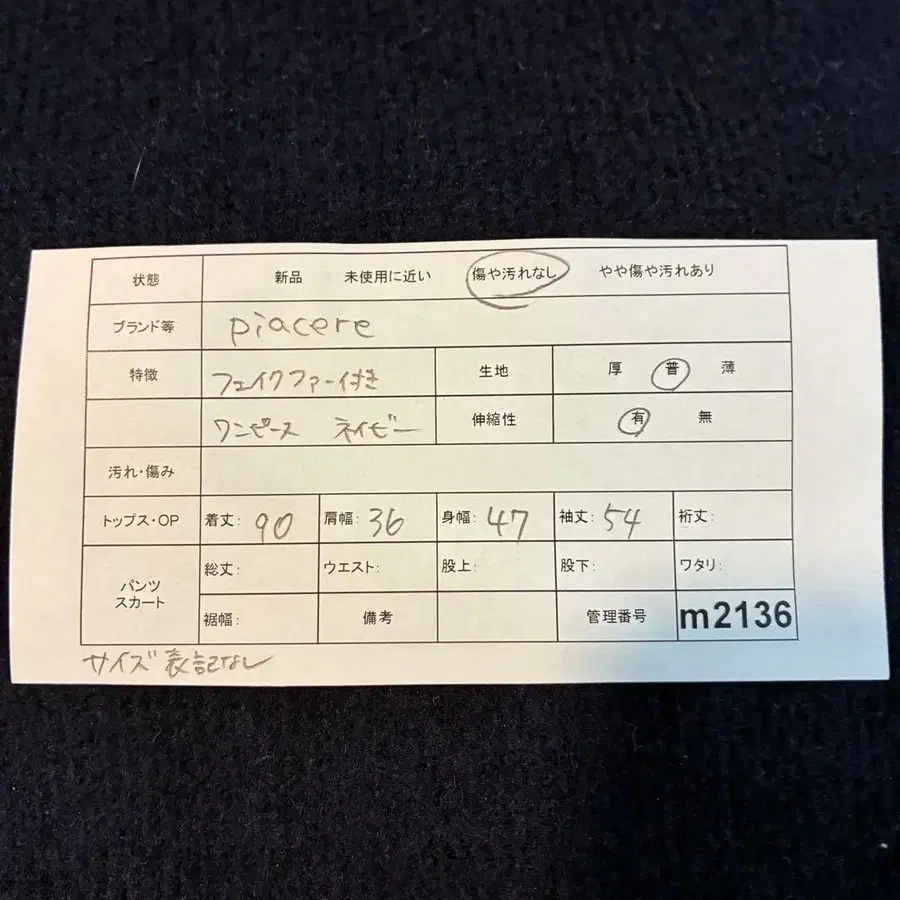 状態 新品 未使用に近い 傷や汚れなし やや傷や汚れあり
ブランド等 piacere
特徴 フェイクファー付き 生地 厚 普 薄
ワンピース ネイビー 伸縮性 有 無
汚れ・傷み
トップス・OP 着丈: 90 肩幅: 36 身幅: 47 袖丈: 54 裄丈:
パンツ スカート 総丈: ウエスト: 股上: 股下: ワタリ:
裾幅: 備考 管理番号 m2136
サイズ表記なし